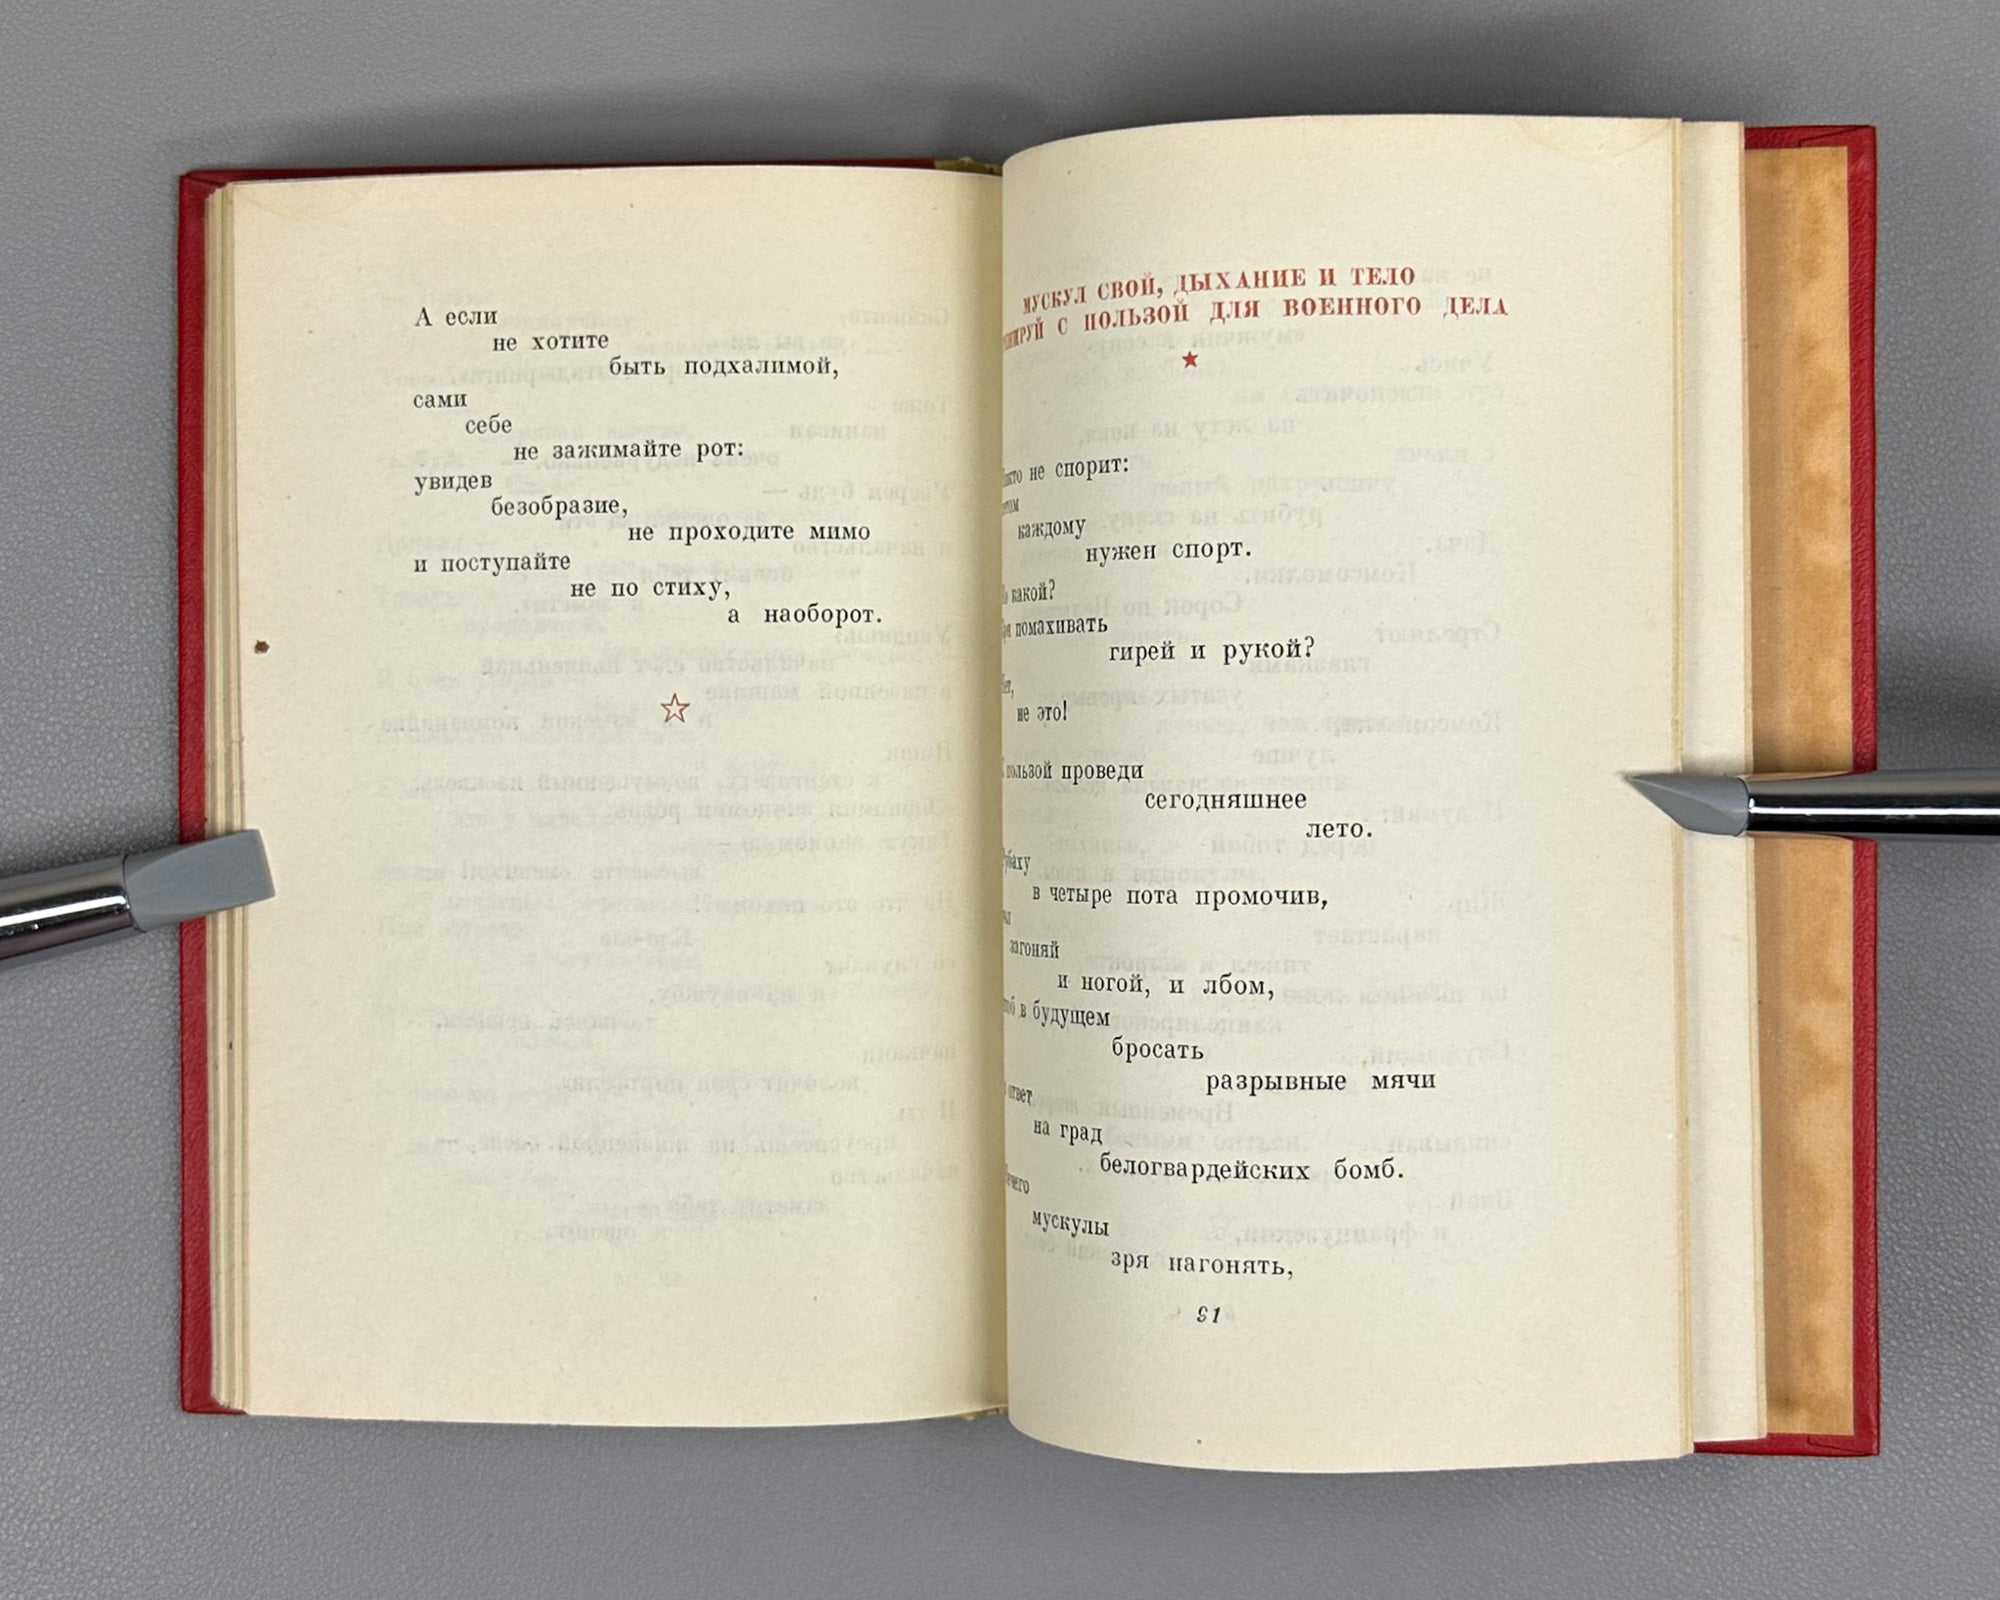 А если
не хотите
быть подхалимой,
сами
себе
не зажимайте рот:
увидев
безобразие,
не проходите мимо
и поступайте
не по стиху,
а наоборот.
МУСКУЛ СВОЙ, ДЫХАНИЕ И ТЕЛО
С ПОЛЬЗОЙ ДЛЯ ВОЕННОГО ДЕЛА
не спорит:
каждому
нужен спорт.
какой?
помахивать
гирей и рукой?
не это!
пользой проведи
сегодняшнее
лето.
в четыре пота промочив,
загоняй
и ногой, и лбом,
в будущем
бросать
разрывные мячи
ответ
на град
белогвардейских бомб.
мускулы
зря нагонять,